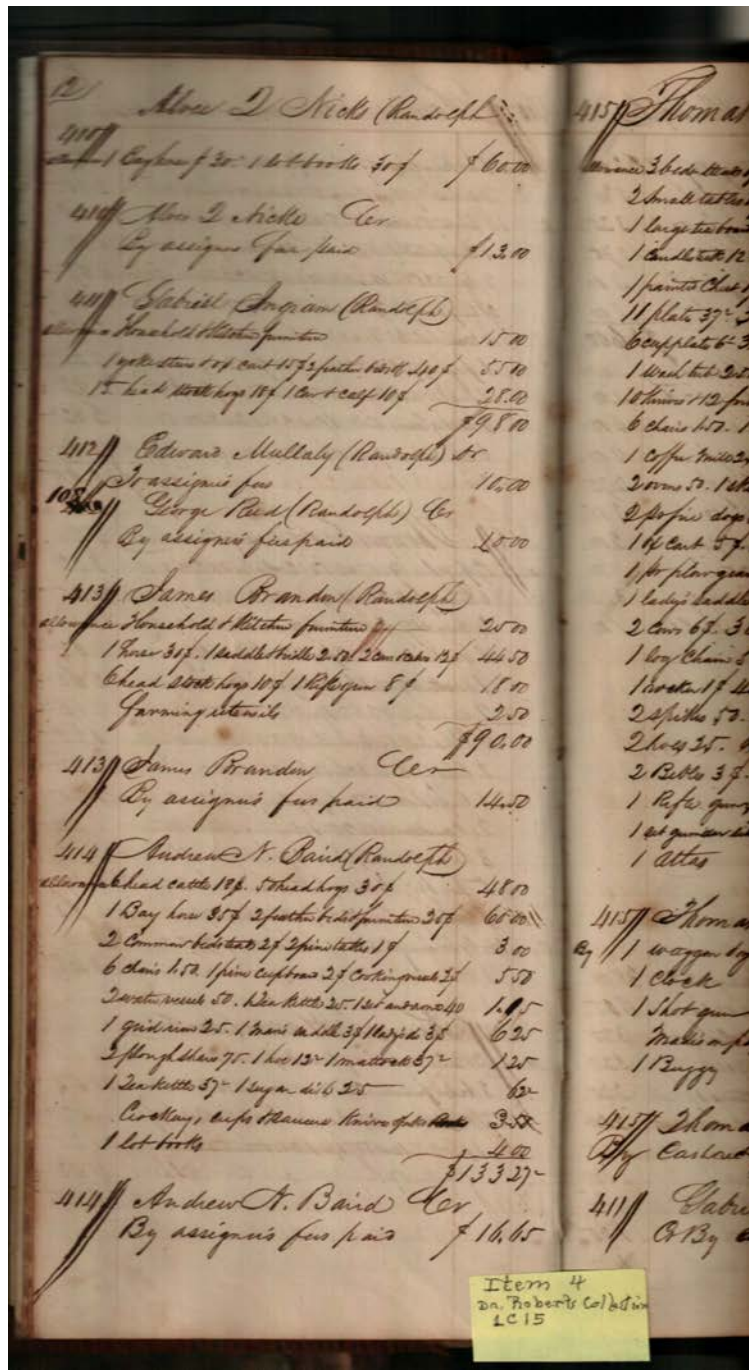 12
Alvee Q Nicks (Randolph
410
allowance 1 30. 1 lot books 30$ $60.00
410 Alvee Q Nicks Cr
By assignees fees paid $13.00
411 Gabriel Ingram (Randolph)
allowance Household & Kitchen furniture 15 00
1 yoke steers & ox cart 15$ 2 feather beds 40$ 55 00
15 head stock hogs 18$ 1 Cow & calf 10$ 28.00
$98 00
412 Edward Mullaly (Randolph) Dr
To assignees fees 10.00
108 George Reed (Randolph) Cr
By assignees fees paid 10 00
413 James Brandon (Randolph)
allowance Household & Kitchen furniture 25 00
1 horse 30$. 1 saddle & bridle 2.50. 2 cows & calves 12$ 44 50
6 head stock hogs 10$ 1 Rifle gun 8$ 18 00
Farming utensils 2 50
$90.00
413 James Brandon Cr
By assignees fees paid 14.50
414 Andrew N. Baird (Randolph)
allowance 6 head cattle 18$. 50 head hogs 30$ 48 00
1 Bay horse 35$ 2 feather beds & furniture 25$ 60 00
2 Common bedsteads 2$ 2 pine tables 1$ 3 00
6 chairs 1.50. 1 pine cupboard 2$ Cooking vessels 2$ 5 50
2 water vessels 50. 1 Tea Kettle 25. 1 set andirons 40 1.15
1 grid iron 25. 1 man's saddle 3$ 1 lady's do 3$ 6 25
2 plough shares 75. 1 hoe 12½ 1 mattock 37½ 1 25
1 Tea Kettle 37½ 1 sugar dish 25 62½
Crockery, cups & saucers Knives & forks 3.50
1 lot books 4 00
$133 27½
414 Andrew N. Baird Cr
By assignees fees paid $16.65
415 Thomas
allowance 3 bedsteads
2 Small tables
1 large tea
1 candlestick 12
1 painted Chest
11 plates 37½
6 cup plates 6¼
1 wash tub 25
10 Knives & 12 for
6 chairs 1.50. 1
1 coffee mill 2
2 ovens 50. 1
2 dogs
1 ox cart 5$.
1 pr plow gear
1 lady's saddle
2 Cows 6$. 3
1 log Chain
1 1$
2 spikes 50.
2 hoes 25.
2 Bibles 3$.
1 Rifle gun
1 set
1 Atlas
415 Thoma
By 1 waggon
1 Clock
1 Shot gun
1 Buggy
415 Thoma
By Cash
411 Gabri
Cr By
Item 4
Dr. Roberts Collection
1C15